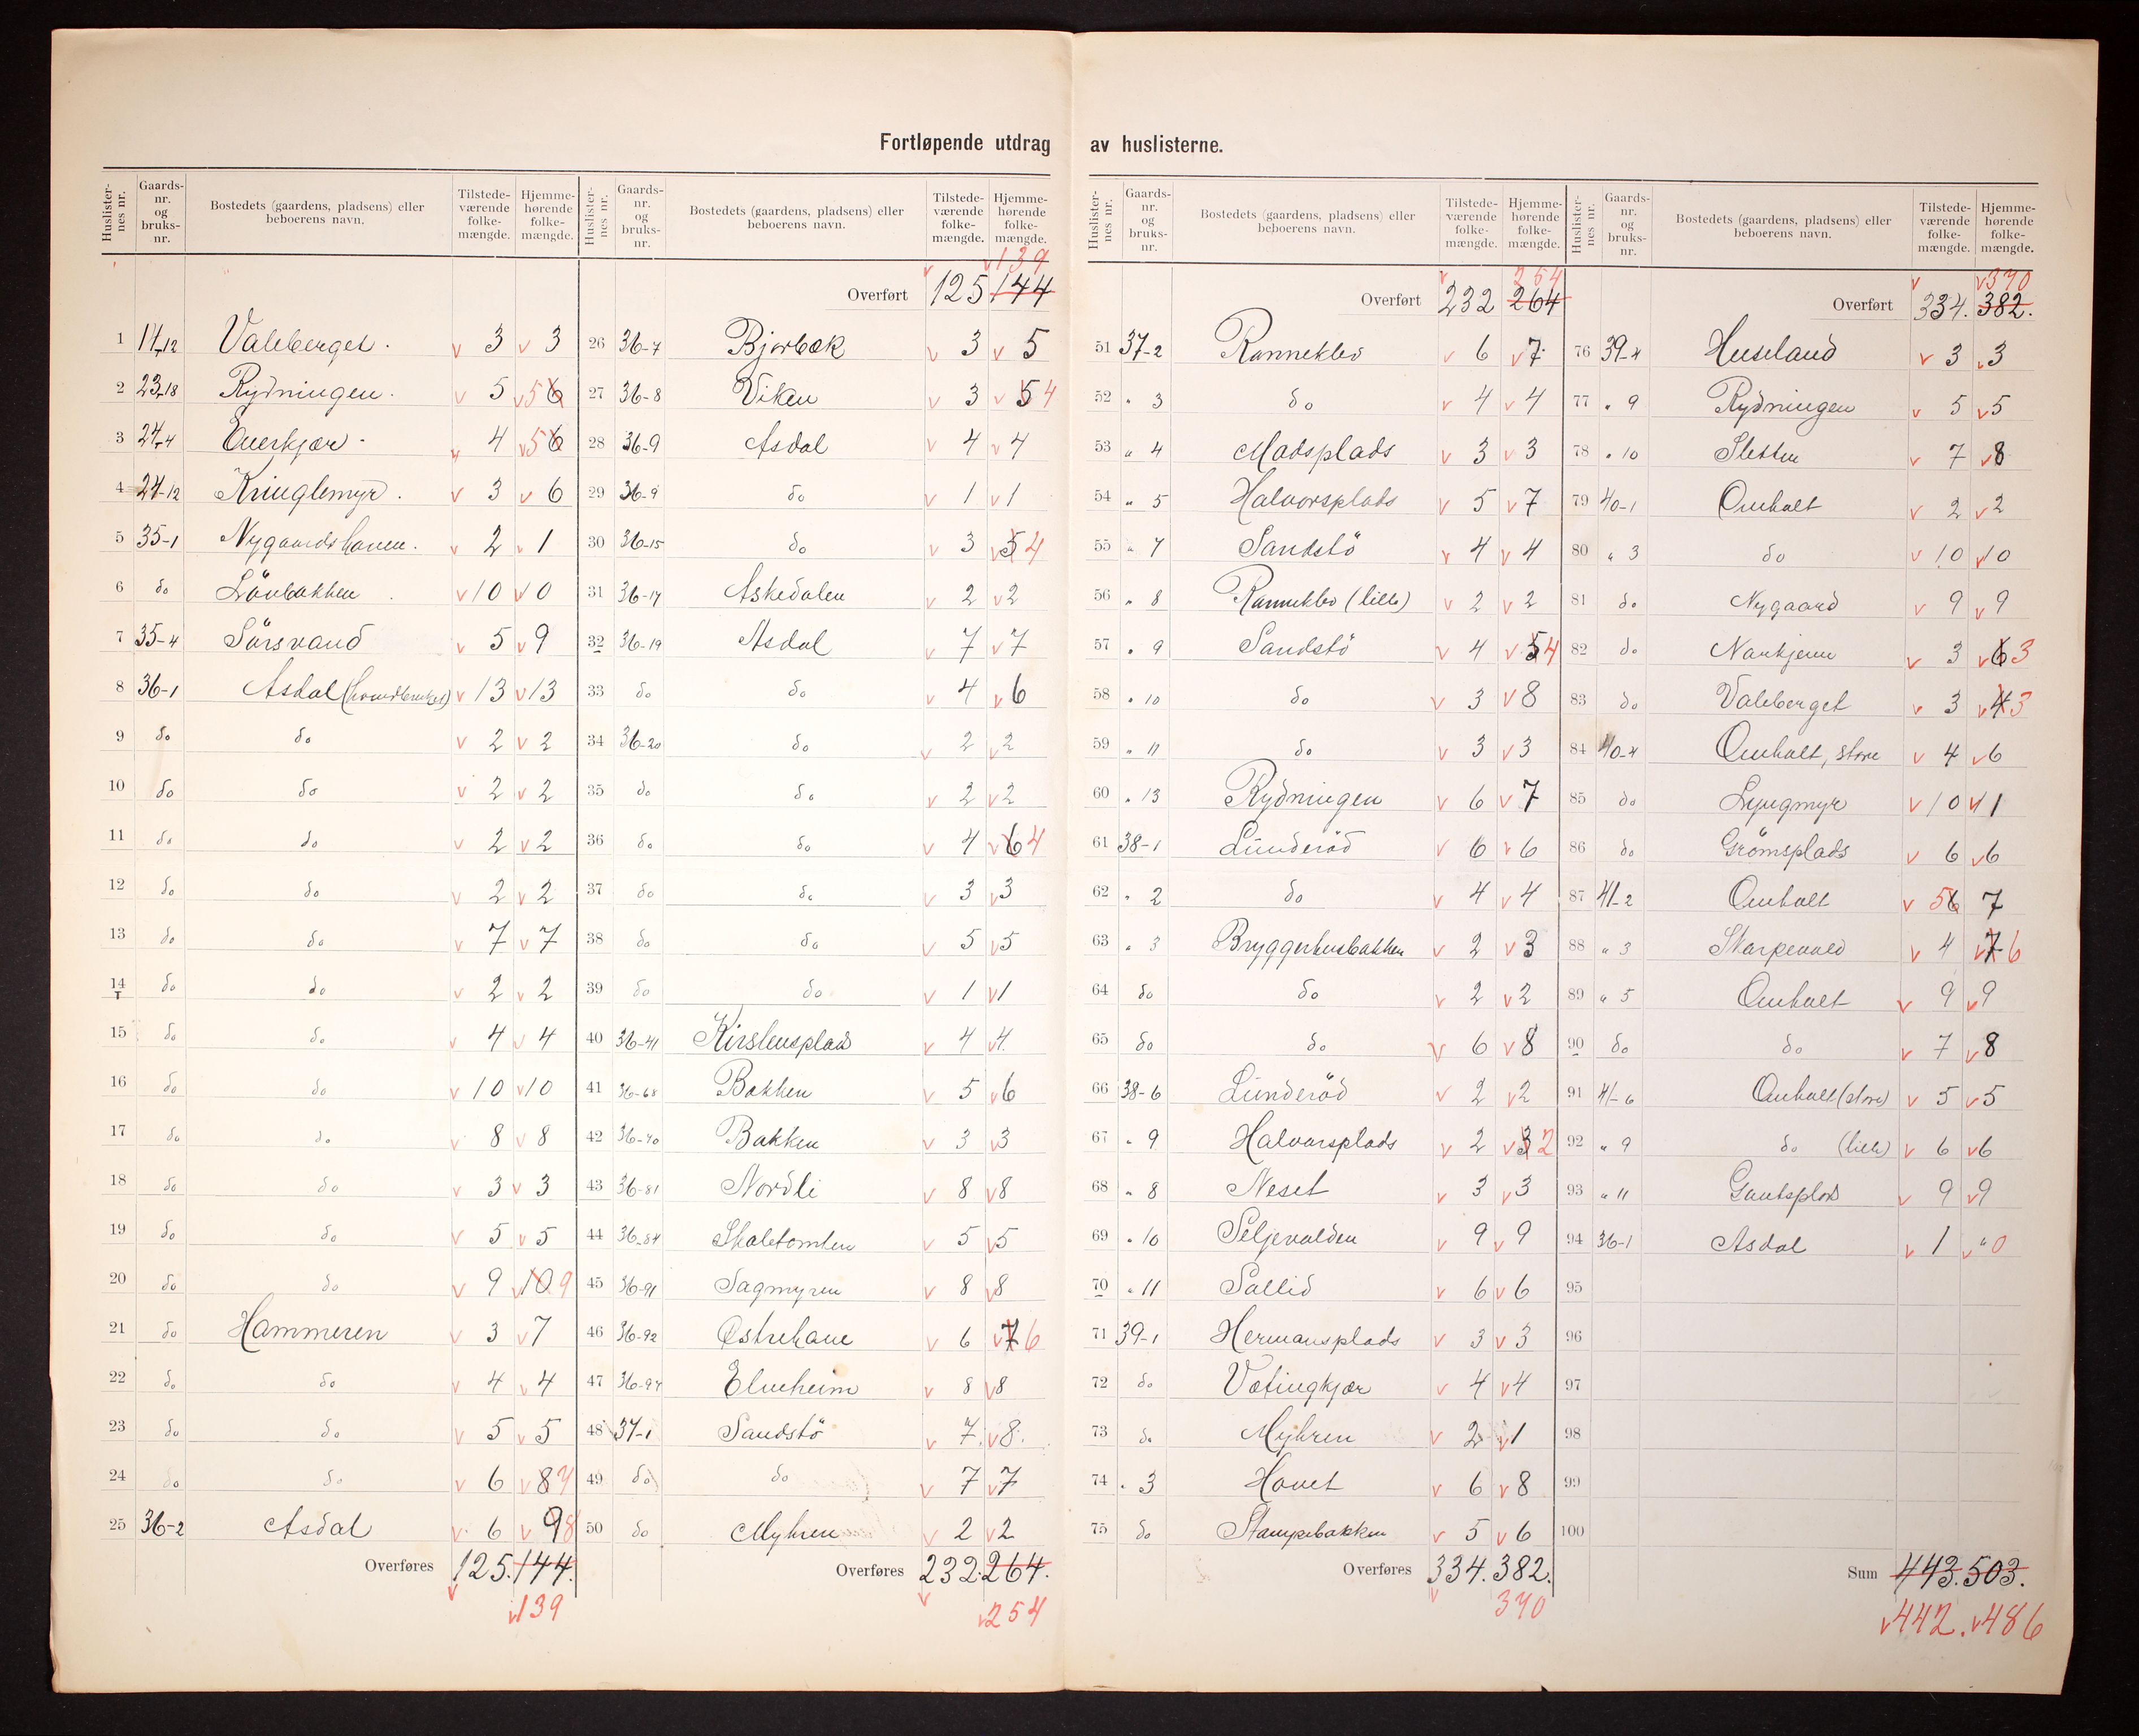 Fortløpende utdrag av huslisterne.
Huslisternes nr. Gaards-nr. og bruks-nr. Bostedets (gaardens, pladsens) eller beboerens navn. Tilstedeværende folkemængde. Hjemmehørende folkemængde.
1 14-12 Valeberget. 3 3
2 23-18 Rydningen. 5 6 5
3 24-4 4 6 5
4 24-12 Kringlemyr. 3 6
5 35-1 Nygaardshaven. 2 1
6 do Lövbakken. 10 10
7 35-4 Sörsvand 5 9
8 36-1 Asdal (hovedbruket) 13 13
9 do do 2 2
10 do do 2 2
11 do do 2 2
12 do do 2 2
13 do do 7 7
14 do do 2 2
15 do do 4 4
16 do do 10 10
17 do do 8 8
18 do do 3 3
19 do do 5 5
20 do do 9 10 9
21 do Hammeren 3 7
22 do do 4 4
23 do do 5 5
24 do do 6 8 7
25 36-2 Asdal 6 9 8
Overføres 125. 144.
139
Huslisternes nr. Gaards-nr. og bruks-nr. Bostedets (gaardens, pladsens) eller beboerens navn. Tilstedeværende folkemængde. Hjemmehørende folkemængde.
139
Overført 125 144
26 36-7 Bjorbæk 3 5
27 36-8 Viken 3 5 4
28 36-9 Asdal 4 4
29 36-9 do 1 1
30 36-15 do 3 5 4
31 36-17 Askedalen 2 2
32 36-19 Asdal 7 7
33 do do 4 6
34 36-20 do 2 2
35 do do 2 2
36 do do 4 6 4
37 do do 3 3
38 do do 5 5
39 do do 1 1
40 36-41 Kirstensplads 4 4.
41 36-68 Bakken 5 6
42 36-70 Bakken 3 3
43 36-81 Nordli 8 8
44 36-84 Skoletomten 5 5
45 36-91 Sagmyren 8 8
46 36-92 Østrehave 6 7 6
47 36-94 Elveheim 8 8
48 37-1 Sandstö 7. 8.
49 do do 7 7
50 do Myhren 2 2
Overføres 232. 264.
254
Huslisternes nr. Gaards-nr. og bruks-nr. Bostedets (gaardens, pladsens) eller beboerens navn. Tilstedeværende folkemængde. Hjemmehørende folkemængde.
254
Overført 232 264
51 37-2 Ranneklev 6 7
52 " 3 do 4 4
53 " 4 Madsplads 3 3
54 " 5 Halvorsplads 5 7
55 " 7 Sandstö 4 4
56 " 8 Ranneklev (lille) 2 2
57 " 9 Sandstö 4 5 4
58 " 10 do 3 8
59 " 11 do 3 3
60 " 13 Rydningen 6 7
61 38-1 Lunderöd 6 6
62 " 2 do 4 4
63 " 3 Bryggerhusbakken 2 3
64 do do 2 2
65 do do 6 8
66 38-6 Lunderöd 2 2
67 " 9 Halvorsplads 2 3 2
68 " 8 Neset 3 3
69 " 10 Seljevolden 9 9
70 " 11 Sollid 6 6
71 39-1 Hermansplads 3 3
72 do Vætingkjær 4 4
73 do Myhren 2 1
74 " 3 Hovet 6 8
75 do Stampebakken 5 6
Overføres 334. 382.
370
Huslisternes nr. Gaards-nr. og bruks-nr. Bostedets (gaardens, pladsens) eller beboerens navn. Tilstedeværende folkemængde. Hjemmehørende folkemængde.
370
Overført 334. 382.
76 39-4 Huseland 3 3
77 " 9 Rydningen 5 5
78 " 10 Sletten 7 8
79 40-1 Omholt 2 2
80 " 3 do 10 10
81 do Nygaard 9 9
82 do 3 6 3
83 do Valeberget 3 4 3
84 40-4 Omholt, store 4 6
85 do Lyngmyr 10 11
86 do Grömsplads 6 6
87 41-2 Omholt 6 5 7
88 " 3 4 7 6
89 " 5 Omholt 9 9
90 do do 7 8
91 41-6 Omholt (store) 5 5
92 " 9 do (lille) 6 6
93 " 11 9 9
94 36-1 Asdal 1 " 0
95
96
97
98
99
100
Sum 443. 503.
442. 486